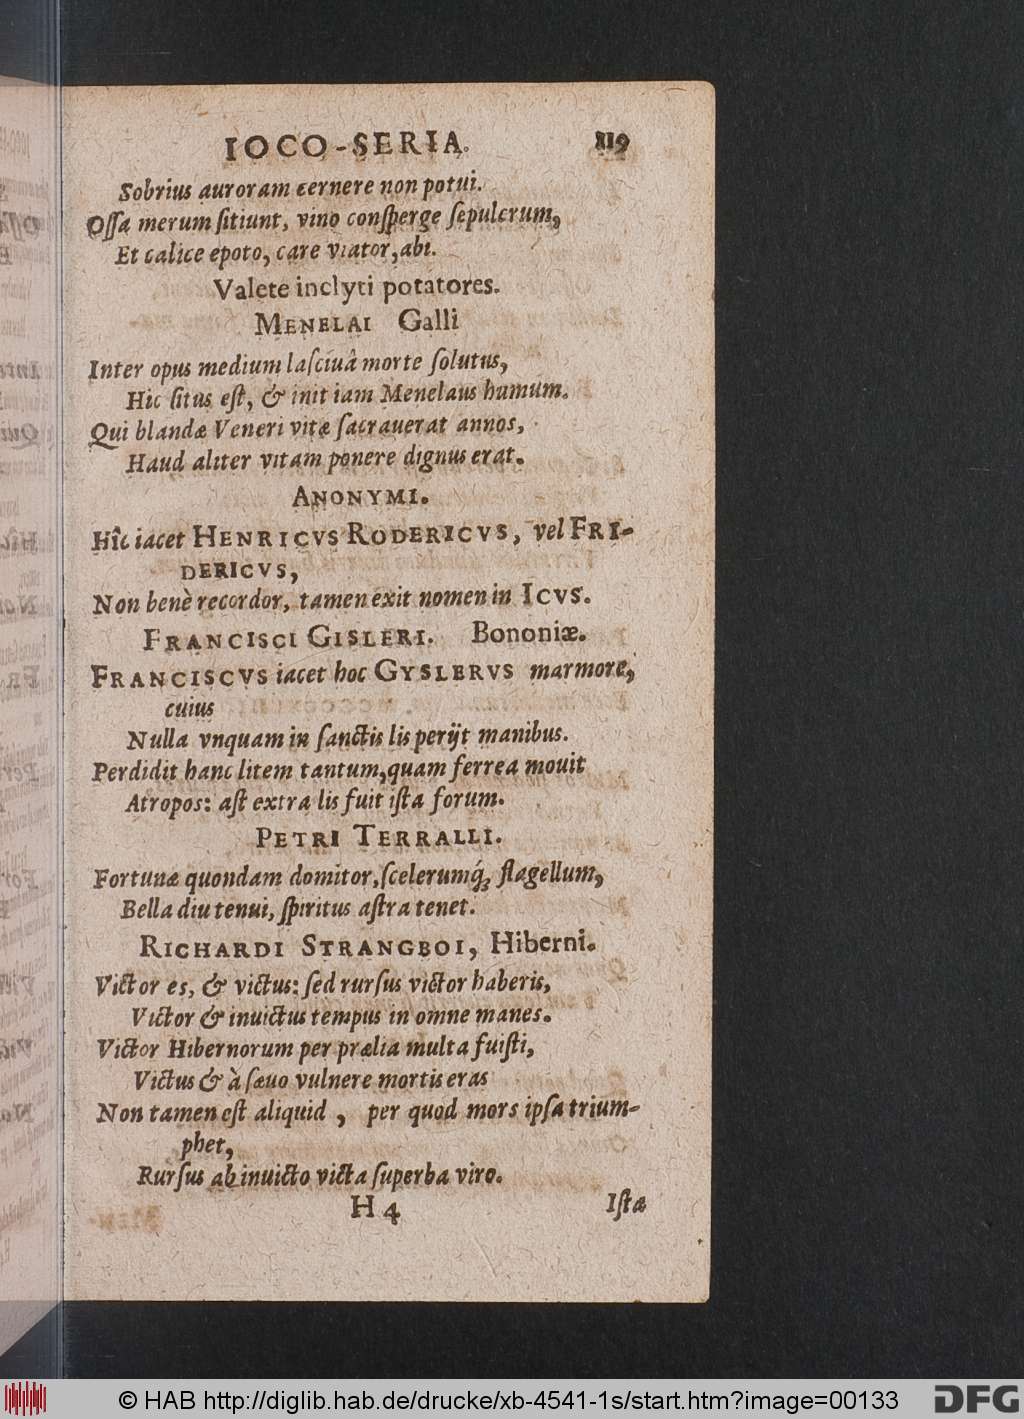 IOCO-SERIA. 119
Sobrius auroram cernere non potui.
Oſſa merum ſitiunt, vino conſperge ſepulcrum,
Et calice epoto, care viator, abi.
Valete inclyti potatores.
MENELAI Galli
Inter opus medium laſciuâ morte ſolutus,
Hic ſitus eſt, & init iam Menelaus humum.
Qui blandæ Veneri vitæ ſacrauerat annos,
Haud aliter vitam ponere dignus erat.
ANONYMI.
Hîc iacet HENRICVS RODERICVS, vel FRI-
DERICVS,
Non benè recordor, tamen exit nomen in ICVS.
FRANCISCI GISLERI. Bononiæ.
FRANCISCVS iacet hoc GYSLERVS marmore,
cuius
Nulla vnquam in ſanctis lis perijt manibus.
Perdidit hanc litem tantum, quam ferrea mouit
Atropos: aſt extra lis fuit iſta forum.
PETRI TERRALLI.
Fortunæ quondam domitor, ſcelerumq́; flagellum,
Bella diu tenui, ſpiritus aſtra tenet.
RICHARDI STRANGBOI, Hiberni.
Victor es, & victus: ſed rurſus victor haberis,
Victor & inuictus tempus in omne manes.
Victor Hibernorum per prælia multa fuiſti,
Victus & à ſæuo vulnere mortis eras
Non tamen eſt aliquid, per quod mors ipſa trium-
phet,
Rurſus ab inuicto victa ſuperba viro.
H 4 Iſtæ
© HAB http://diglib.hab.de/drucke/xb-4541-1s/start.htm?image=00133 DFG